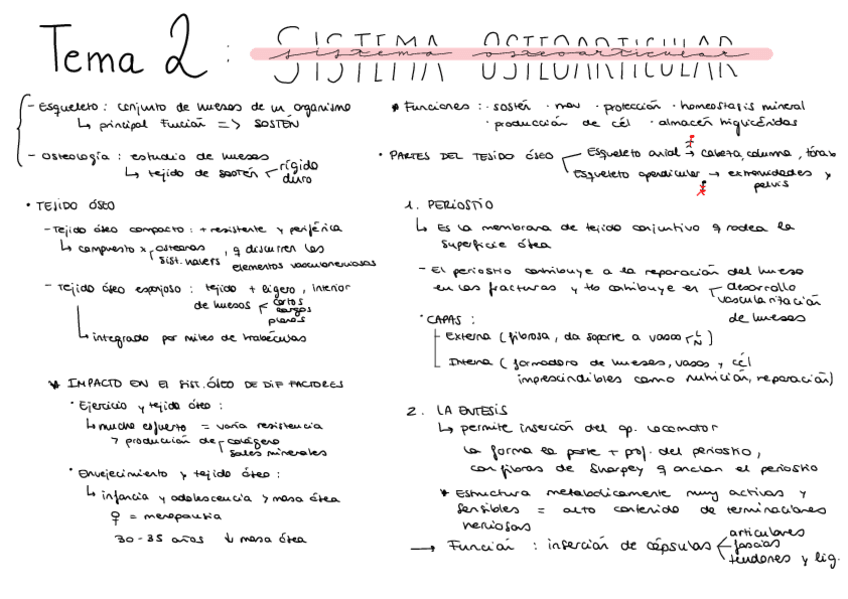 Tema 2 : SISTEMA OSTEOARTICULAR
sistema osteoarticular
- Esqueleto : conjunto de huesos de un organismo
↳ principal Función => SOSTÉN
- Osteología : estudio de huesos
↳ tejido de sostén rígido
duro
• TEJIDO ÓSEO
- Tejido óseo compacto : + resistente y periférica
↳ compuesto x osteonas , q discurren los
sist. havers elementos vasculonerviosos
- Tejido óseo esponjoso : tejido + ligero , interior
de huesos cortos
largos
planos
↳ integrado por miles de trabéculas
* IMPACTO EN EL SIST. ÓSEO DE DIF FACTORES
• Ejercicio y tejido óseo :
↳ mucho esfuerzo = varía resistencia
> producción de colágeno
sales minerales
• Envejecimiento y tejido óseo :
↳ infancia y adolescencia > masa ósea
♀ = menopausia
30-35 años ↓ masa ósea
* Funciones : · sostén · mov · protección · homeostasis mineral
· producción de cél · almacén
• PARTES DEL TEJIDO ÓSEO Esqueleto axial → cabeza, columna, tórax
Esqueleto apendicular → extremidades y
pelvis
1. PERIOSTIO
↳ Es la membrana de tejido conjuntivo q rodea la
superficie ósea
- El periostio contribuye a la reparación del hueso
en las fracturas y tb contribuye en desarrollo
vascularización
de huesos
• CAPAS :
Externa (fibrosa, da soporte a vasos L
N )
Interna ( formadora de huesos, vasos y cél
imprescindibles como nutrición, reparación)
2. LA ENTESIS
↳ permite inserción del ap. locomotor
La forma la parte + prof. del periostio,
con fibras de Sharpey q anclan el periostio
* Estructura metabólicamente muy activas y
sensibles = alto contenido de terminaciones
nerviosas
→ Función : inserción de cápsulas articulares
fascias
tendones y lig.